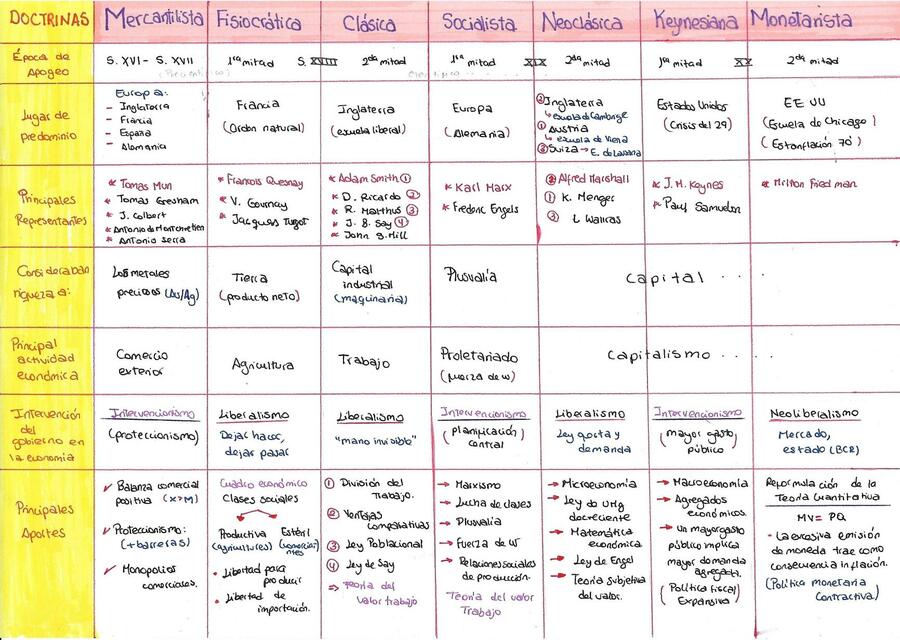 DOCTRINAS Mercantilista Fisiocrática Clásica Socialista Neoclásica Keynesiana Monetarista
Época de
Apogeo
S. XVI - S. XVII
1ra mitad S. XVIII 2da mitad
1ra mitad XIX 2da mitad
1ra mitad XX 2da mitad
Lugar de
predominio
Europa:
- Inglaterra
- Francia
- España
- Alemania
Francia
(Orden natural)
Inglaterra
(escuela liberal)
Europa
(Alemania)
② Inglaterra
↳ escuela de Cambrige
① Austria
↳ escuela de Viena
③ Suiza → E. de Lausana
Estados Unidos
(Crisis del 29)
EE UU
(Escuela de Chicago)
(Estanflación 70')
Principales
Representantes
* Tomas Mun
* Tomas Gresham
* J. Colbert
* Antonio de Montchretien
* Antonio Serra
* Francois Quesnay
* V. Gournay
* Jacques Turgot
* Adam Smith ①
* D. Ricardo ②
* R. Malthus ③
* J. B. Say ④
* John S. Mill
* Karl Marx
* Frederic Engels
② Alfred Marshall
① K. Menger
③ L. Wallras
* J. M. Keynes
* Paul Samuelon
* Milton Friedman
Consideraban
riqueza a:
Los metales
preciosos (Au/Ag)
Tierra
(producto neto)
Capital
industrial
(maquinaria)
Plusvalía
Capital . . .
Principal
actividad
económica
Comercio
exterior
Agricultura
Trabajo
Proletariado
(fuerza de w)
Capitalismo . . .
Intervención
del
gobierno en
la economía
Intervencionismo
(proteccionismo)
Liberalismo
Dejar hacer,
dejar pasar
Liberalismo
"mano invisible"
Intervencionismo
(planificación
central)
Liberalismo
Ley oferta y
demanda
Intervencionismo
(mayor gasto
público)
Neoliberalismo
Mercado,
estado (BCR)
Principales
Aportes
✓ Balanza comercial
positiva (X>M)
✓ Proteccionismo:
(+barreras)
✓ Monopolios
comerciales.
Cuadro económico
Clases sociales
Productiva Estéril
(agricultures) (comerciantes)
• Libertad para
producir
• Libertad de
importación.
① División del
Trabajo.
② Ventajas
comparativas
③ Ley Poblacional
④ Ley de Say
⇒ Teoría del
valor trabajo
→ Marxismo
→ Lucha de clases
→ Plusvalia
→ Fuerza de W
→ Relaciones sociales
de producción.
Teoría del valor
Trabajo
→ Microeconomía
→ Ley de Umg
decreciente
→ Matemática
económica
→ Ley de Engel
→ Teoría subjetiva
del valor.
→ Macroeconomía
→ Agregados
económicos.
→ Un mayor gasto
público implica
mayor demanda
agregada.
(Política fiscal
Expansiva)
Reformulación de la
Teoría Cuantitativa
MV = PQ
• La excesiva emisión
de moneda trae como
consecuencia inflación.
(Política monetaria
Contractiva)